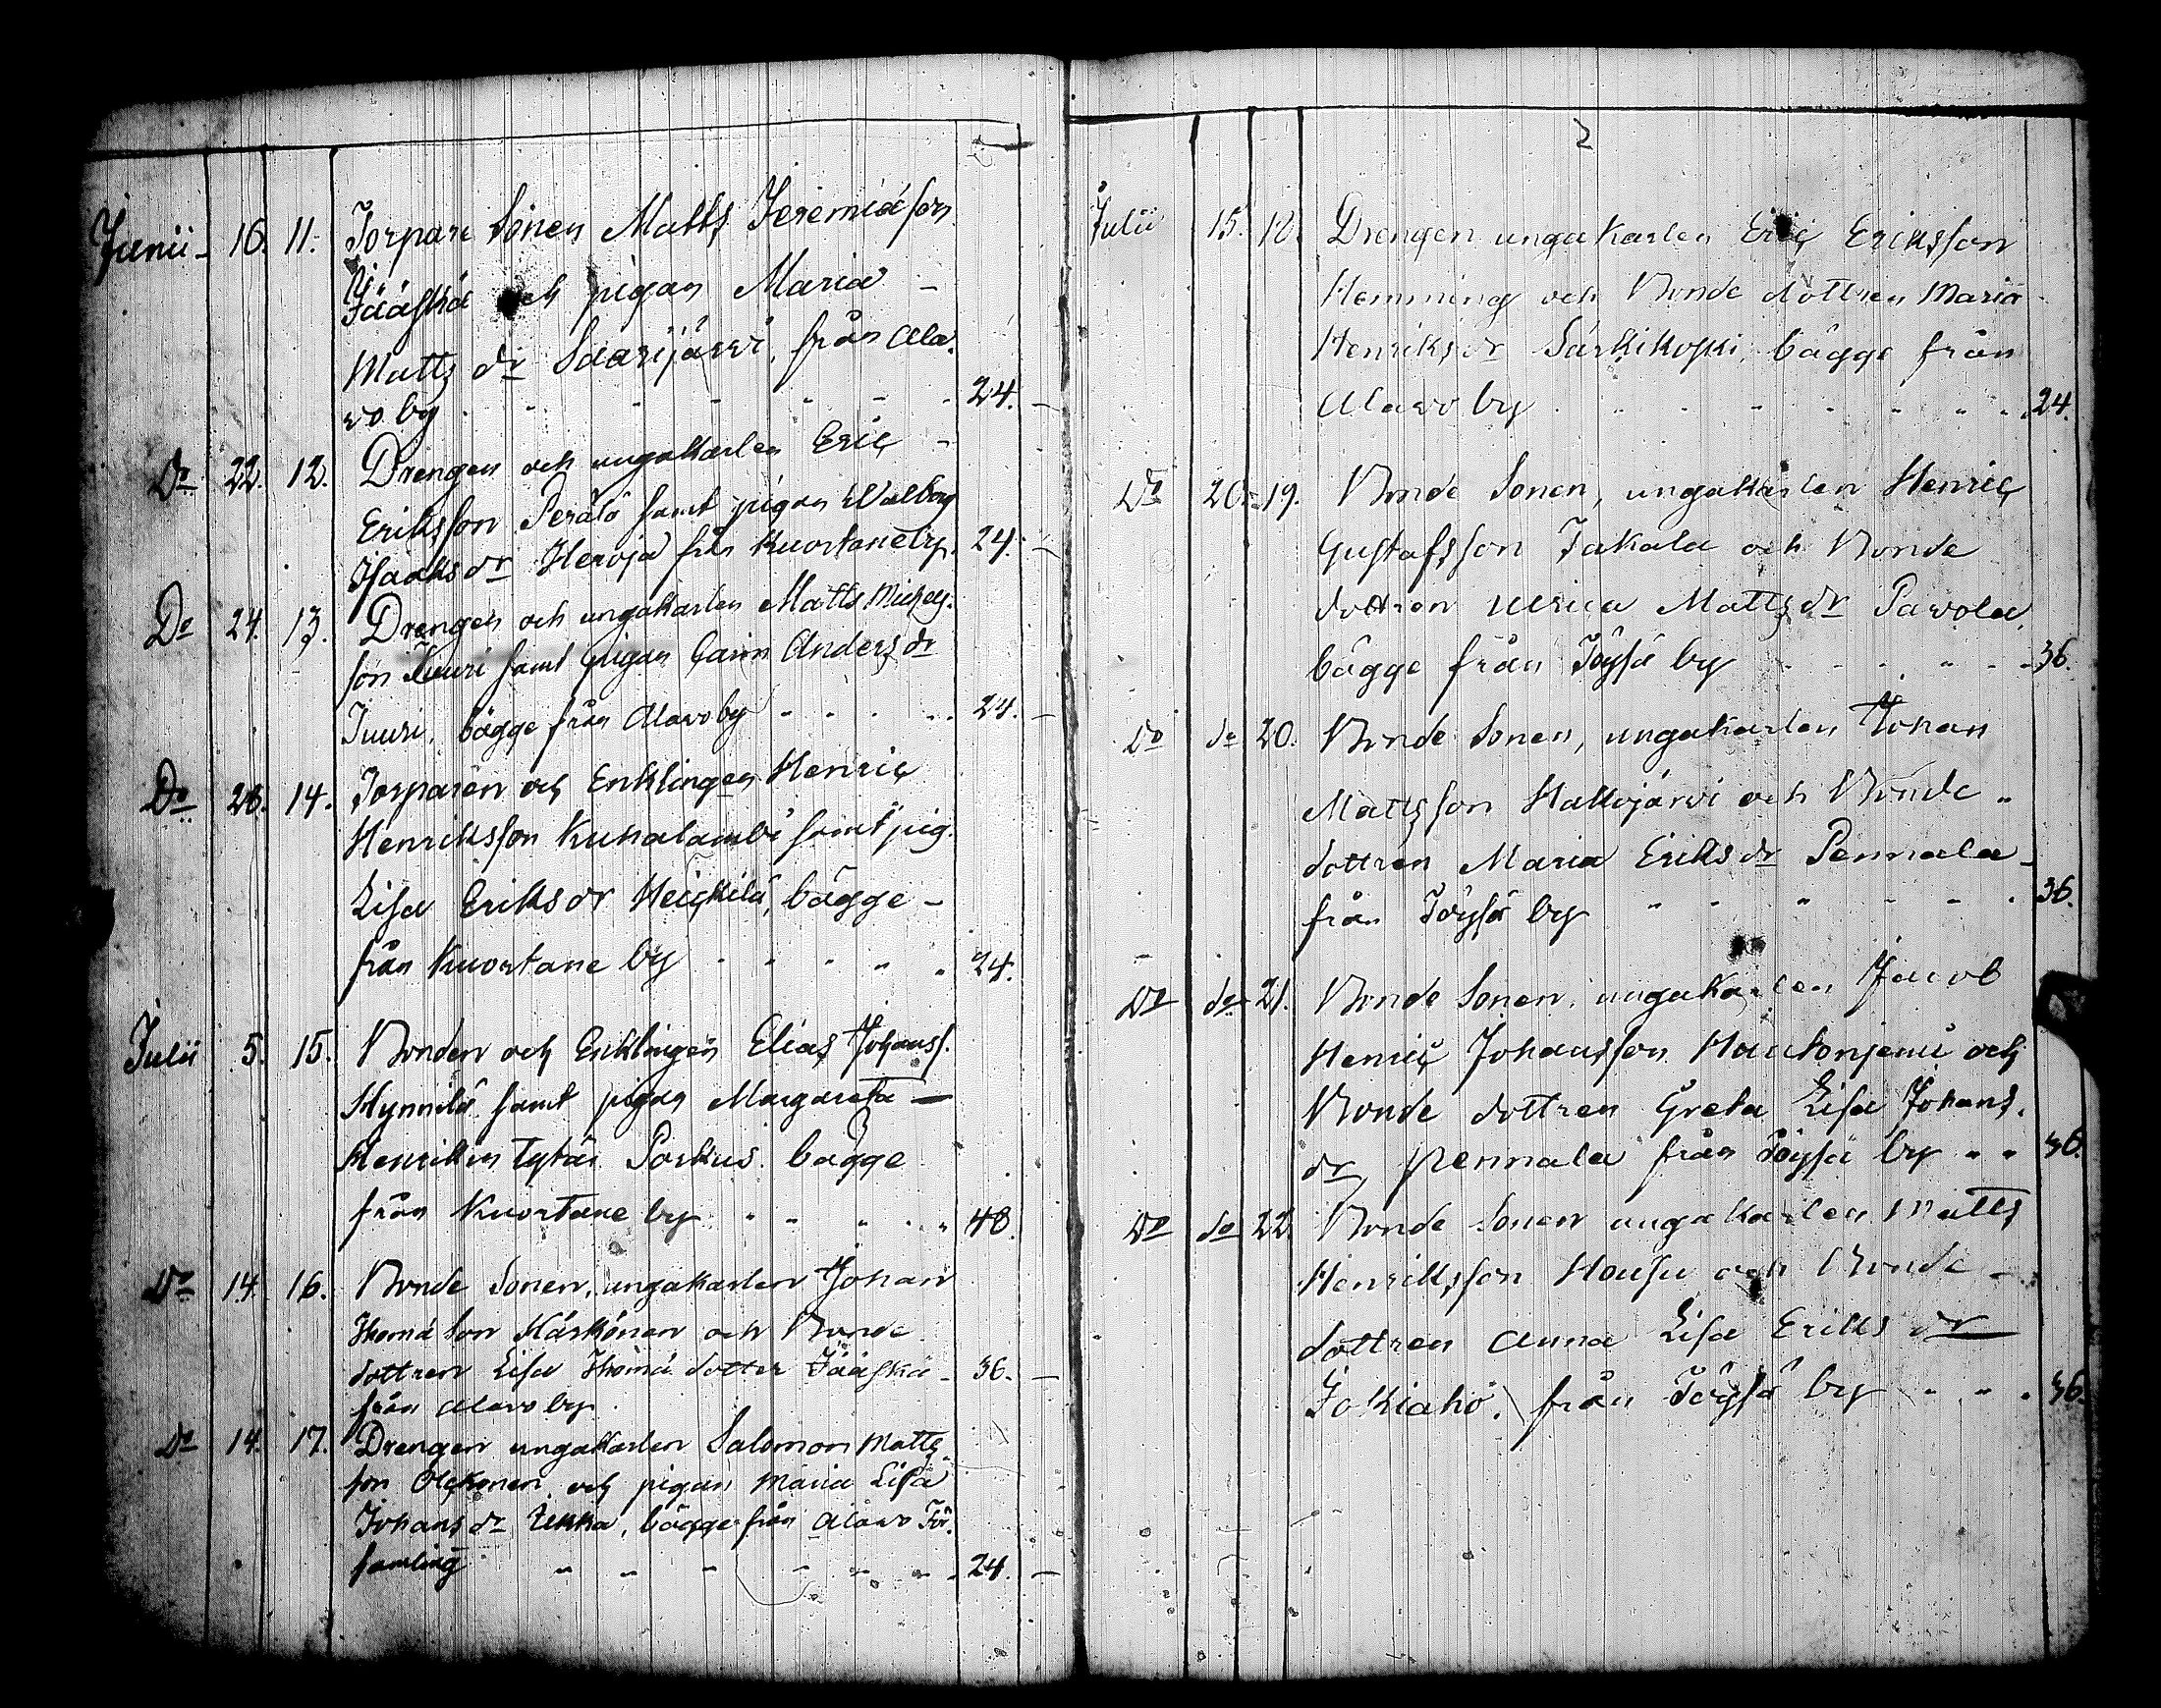 Junii - 16. 11. Torpare Sonen Matts Jeremiæson
Jääskä och pigan Maria -
Matts dr Saarijärvi, från Ala-
vo by - - - - - 24. -
Do 22. 12. Drengen och ungakarlen Eric -
Eriksson Perälä samt pigan Walborg
Isaaks dr Heroja från Kuortane by. 24. -
Do 24. 13. Drengen och ungakarlen Matts Michels-
son Tuuri samt pigan Carin Anders dr
Tuuri, bägge från Alavo by - - - - 24. -
Do 28. 14. Torparen och Enklingen Henric
Henriksson Kuhalambi samt pig.
Lisa Eriks dr Heickilä, bägge -
från Kuortane by - - - - 24.
Julii 5. 15. Bonden och Enklingen Elias Johanss.
Hynnilä samt pigan Margareta -
Henrikin tytär Porkus. bägge
från Kuortane by - - - - 48.
Do 14. 16. Bonde Sonen, ungakarlen Johan
Thomä Son Härkönen och Bonde
dottren Lisa Thomä dotter Jääskä - 36. -
från Alavo by.
Do 14. 17. Drengen ungakarlen Salomon Matts
son Olckonen och pigan Maria Lisa
Johans dr Ukkka, bägge från Alavo För-
samling - - - - - - 24. -
2
Julii 15. 18. Drengen ungakarlen Eric Eriksson
Hemming och Bonde dottren Maria
Henriks dr Särkikoski, bägge från
Alavo by - - - - - - 24.
Do 20. 19. Bonde Sonen, ungakarlen Henric
Gustafsson Jakala och Bonde
dottren Ulrica Matts dr Pavola,
bägge från Töysä by - - - - - 36.
Do do 20. Bonde Sonen, ungakarlen Johan
Mattsson Hakojärvi och Bonde -
dottren Maria Eriks dr Pennala -
från Töysä by - - - - - - 36.
Do do 21. Bonde Sonen, ungakarlen Jacob
Henric Johansson Hautoniemi och
Bonde dottren Greta Lisa Johans-
dr Pennala från Töysä by - - 36.
Do do 22. Bonde Sonen ungakarlen Matts
Henriksson Housu och Bonde -
dottren Anna Lisa Eriks dr
Jokiaho. från Töysä by - - - 36.